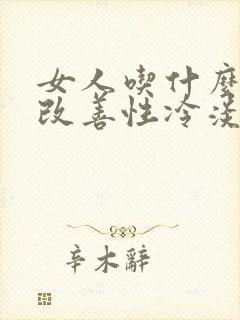 女人喫什麼
改善性冷淡
辛木辭